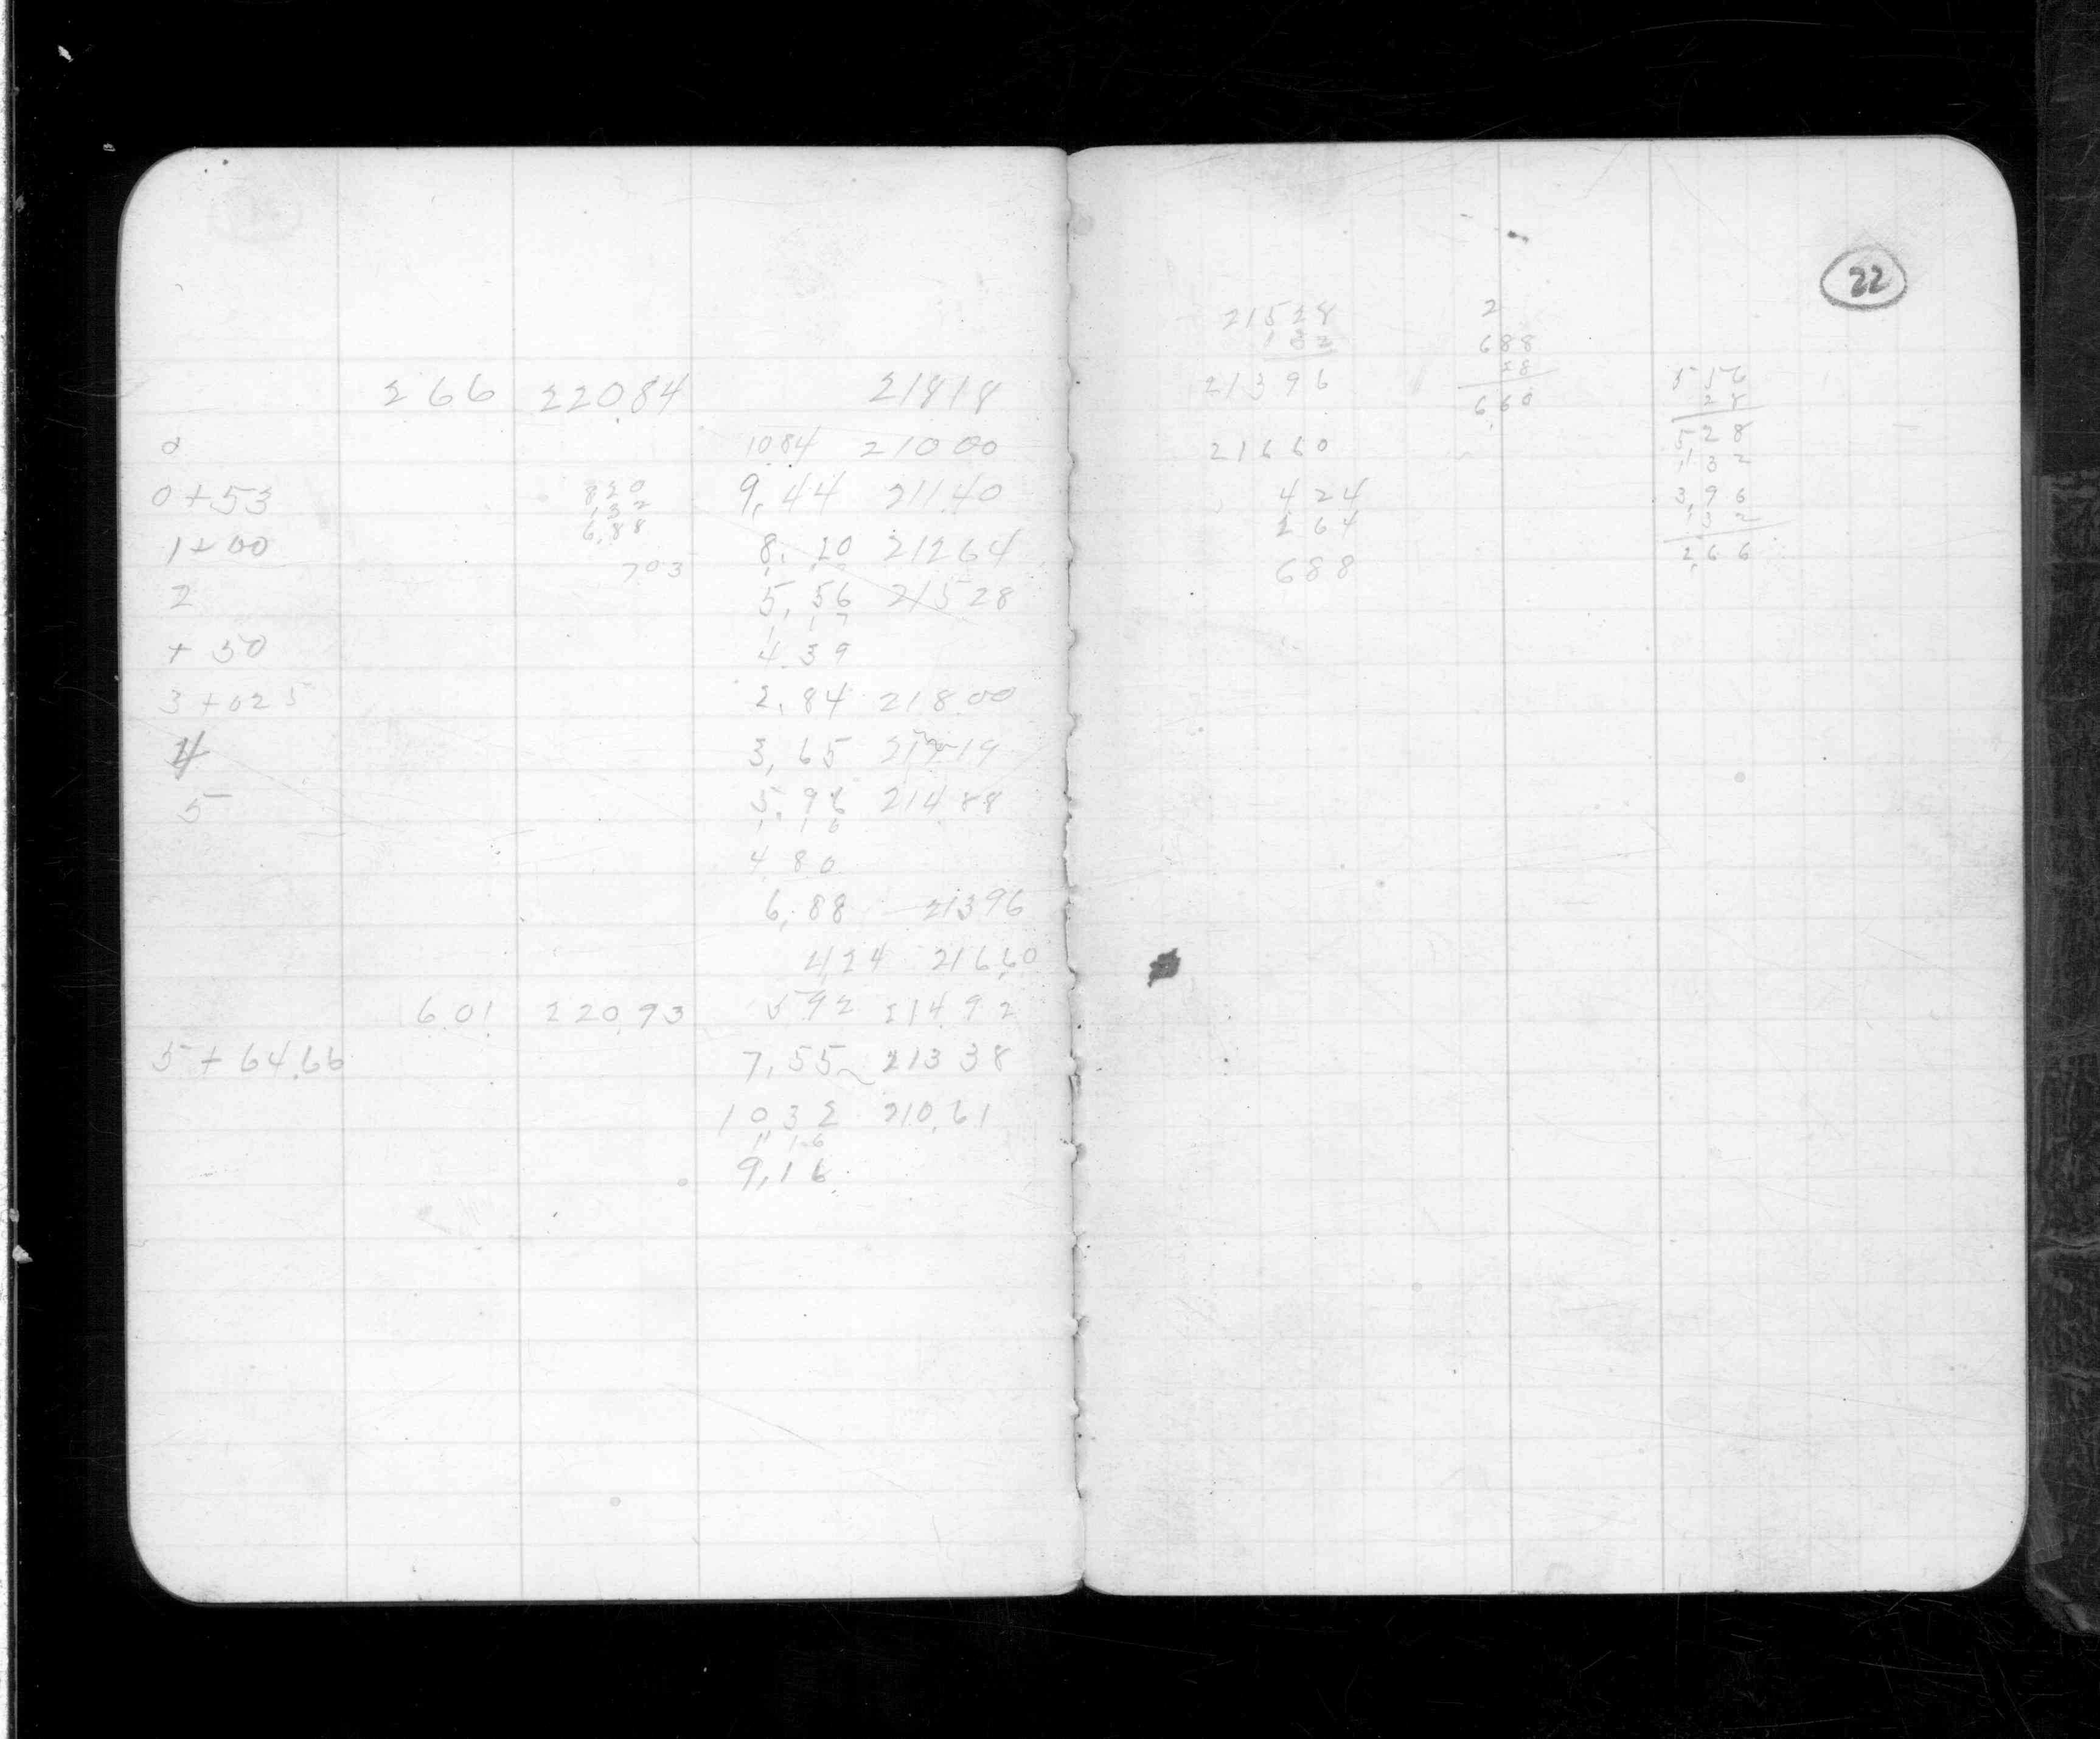 266 220.84 21818
0 10.84 210 00
0+53 9,44 211.40
820
132
6,88
1+00 8.20 212 64
703
2 5,56 215 28
1 17
+ 50 4.39
3+025 2.84 218.00
4 3,65
5 5.96 214.88
1 16
4.80
6.88 21396
4,24 216.60
6.01 220.93 5.92 214.92
5+64.66 7,55 213 38
10,32 210.61
1 16
9,16
22
21528
132
21396
21660
424
264
688
2
688
28
660
556
28
528
132
3,96
132
2,66